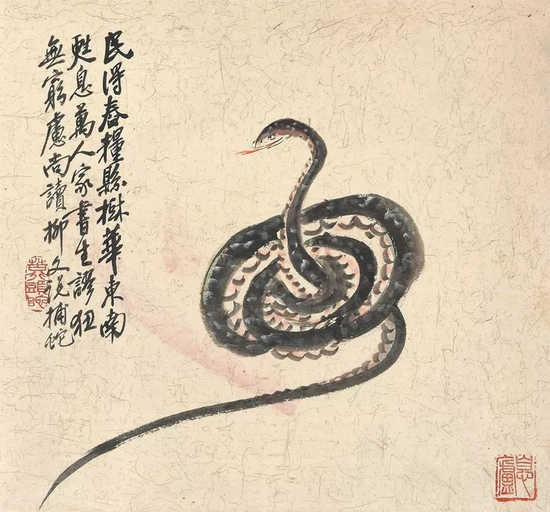 民得春糧縣華東南
甦息萬人家書生謬狂
無窮慮尚讀柳文說捕蛇